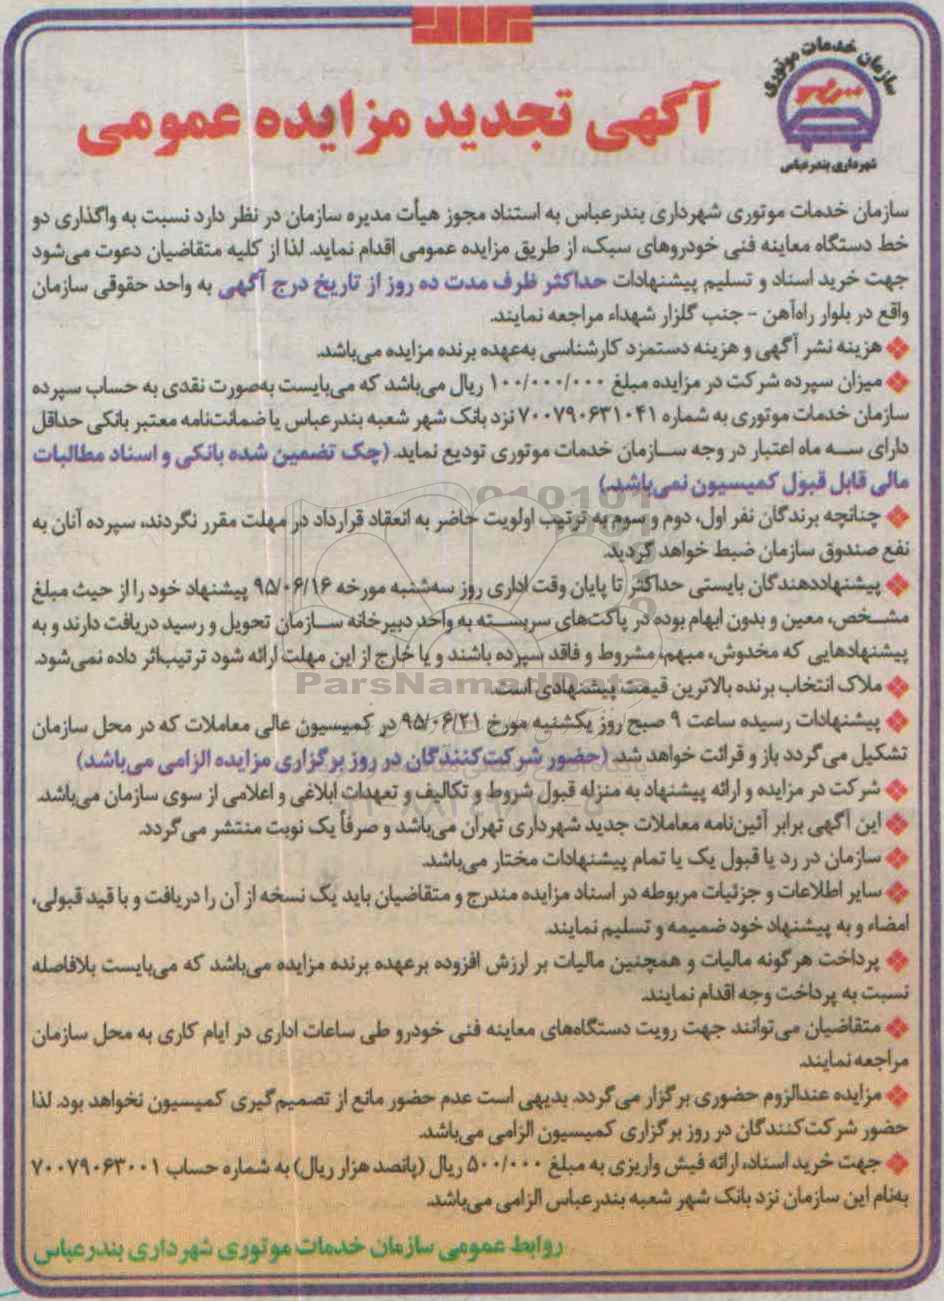 سازمان خدمات موتوری
شهرداری بندرعباس
آگهی تجدید مزایده عمومی
سازمان خدمات موتوری شهرداری بندرعباس به استناد مجوز هیأت مدیره سازمان در نظر دارد نسبت به واگذاری دو
خط دستگاه معاینه فنی خودروهای سبک، از طریق مزایده عمومی اقدام نماید. لذا از کلیه متقاضیان دعوت می‌شود
جهت خرید اسناد و تسلیم پیشنهادات حداکثر ظرف مدت ده روز از تاریخ درج آگهی به واحد حقوقی سازمان
واقع در بلوار راه‌آهن - جنب گلزار شهداء مراجعه نمایند.
❖ هزینه نشر آگهی و هزینه دستمزد کارشناسی به‌عهده برنده مزایده می‌باشد.
❖ میزان سپرده شرکت در مزایده مبلغ ۱۰۰/۰۰۰/۰۰۰ ریال می‌باشد که می‌بایست به‌صورت نقدی به حساب سپرده
سازمان خدمات موتوری به شماره ۷۰۰۷۹۰۶۳۱۰۴۱ نزد بانک شهر شعبه بندرعباس یا ضمانت‌نامه معتبر بانکی حداقل
دارای سه ماه اعتبار در وجه سازمان خدمات موتوری تودیع نماید. (چک تضمین شده بانکی و اسناد مطالبات
مالی قابل قبول کمیسیون نمی‌باشد.)
❖ چنانچه برندگان نفر اول، دوم و سوم به ترتیب اولویت حاضر به انعقاد قرارداد در مهلت مقرر نگردند، سپرده آنان به
نفع صندوق سازمان ضبط خواهد گردید.
❖ پیشنهاددهندگان بایستی حداکثر تا پایان وقت اداری روز سه‌شنبه مورخه ۹۵/۰۶/۱۶ پیشنهاد خود را از حیث مبلغ
مشخص، معین و بدون ابهام بوده در پاکت‌های سربسته به واحد دبیرخانه سازمان تحویل و رسید دریافت دارند و به
پیشنهادهایی که مخدوش، مبهم، مشروط و فاقد سپرده باشند و یا خارج از این مهلت ارائه شود ترتیب‌اثر داده نمی‌شود.
❖ ملاک انتخاب برنده بالاترین قیمت پیشنهادی است.
❖ پیشنهادات رسیده ساعت ۹ صبح روز یکشنبه مورخ ۹۵/۰۶/۲۱ در کمیسیون عالی معاملات که در محل سازمان
تشکیل می‌گردد باز و قرائت خواهد شد. (حضور شرکت‌کنندگان در روز برگزاری مزایده الزامی می‌باشد)
❖ شرکت در مزایده و ارائه پیشنهاد به منزله قبول شروط و تکالیف و تعهدات ابلاغی و اعلامی از سوی سازمان می‌باشد.
❖ این آگهی برابر آئین‌نامه معاملات جدید شهرداری تهران می‌باشد و صرفاً یک نوبت منتشر می‌گردد.
❖ سازمان در رد یا قبول یک یا تمام پیشنهادات مختار می‌باشد.
❖ سایر اطلاعات و جزئیات مربوطه در اسناد مزایده مندرج و متقاضیان باید یک نسخه از آن را دریافت و با قید قبولی،
امضاء و به پیشنهاد خود ضمیمه و تسلیم نمایند.
❖ پرداخت هرگونه مالیات و همچنین مالیات بر ارزش افزوده برعهده برنده مزایده می‌باشد که می‌بایست بلافاصله
نسبت به پرداخت وجه اقدام نمایند.
❖ متقاضیان می‌توانند جهت رویت دستگاه‌های معاینه فنی خودرو طی ساعات اداری در ایام کاری به محل سازمان
مراجعه نمایند.
❖ مزایده عندالزوم حضوری برگزار می‌گردد. بدیهی است عدم حضور مانع از تصمیم‌گیری کمیسیون نخواهد بود. لذا
حضور شرکت‌کنندگان در روز برگزاری کمیسیون الزامی می‌باشد.
❖ جهت خرید اسناد، ارائه فیش واریزی به مبلغ ۵۰۰/۰۰۰ ریال (پانصد هزار ریال) به شماره حساب ۷۰۰۷۹۰۶۳۰۰۱
به‌نام این سازمان نزد بانک شهر شعبه بندرعباس الزامی می‌باشد.
روابط عمومی سازمان خدمات موتوری شهرداری بندرعباس
ParsNamadData